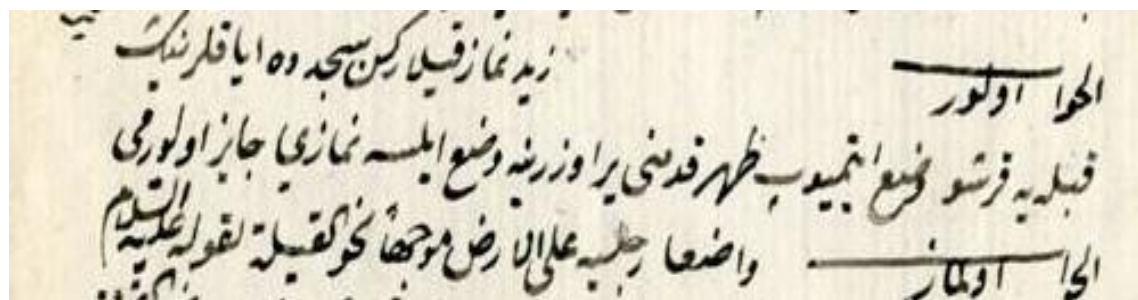 الجواب اولور زيد نماز قيلاركن سجده ده اياقلرينك
قبله يه قرشو وضع ايتميوب ظهر قدمنى ير اوزرينه وضع ايلسه نمازي جايز اولورمى
الجواب اولماز واضعا رجليه على الارض موجها نحو القبلة لقوله عليه السلام